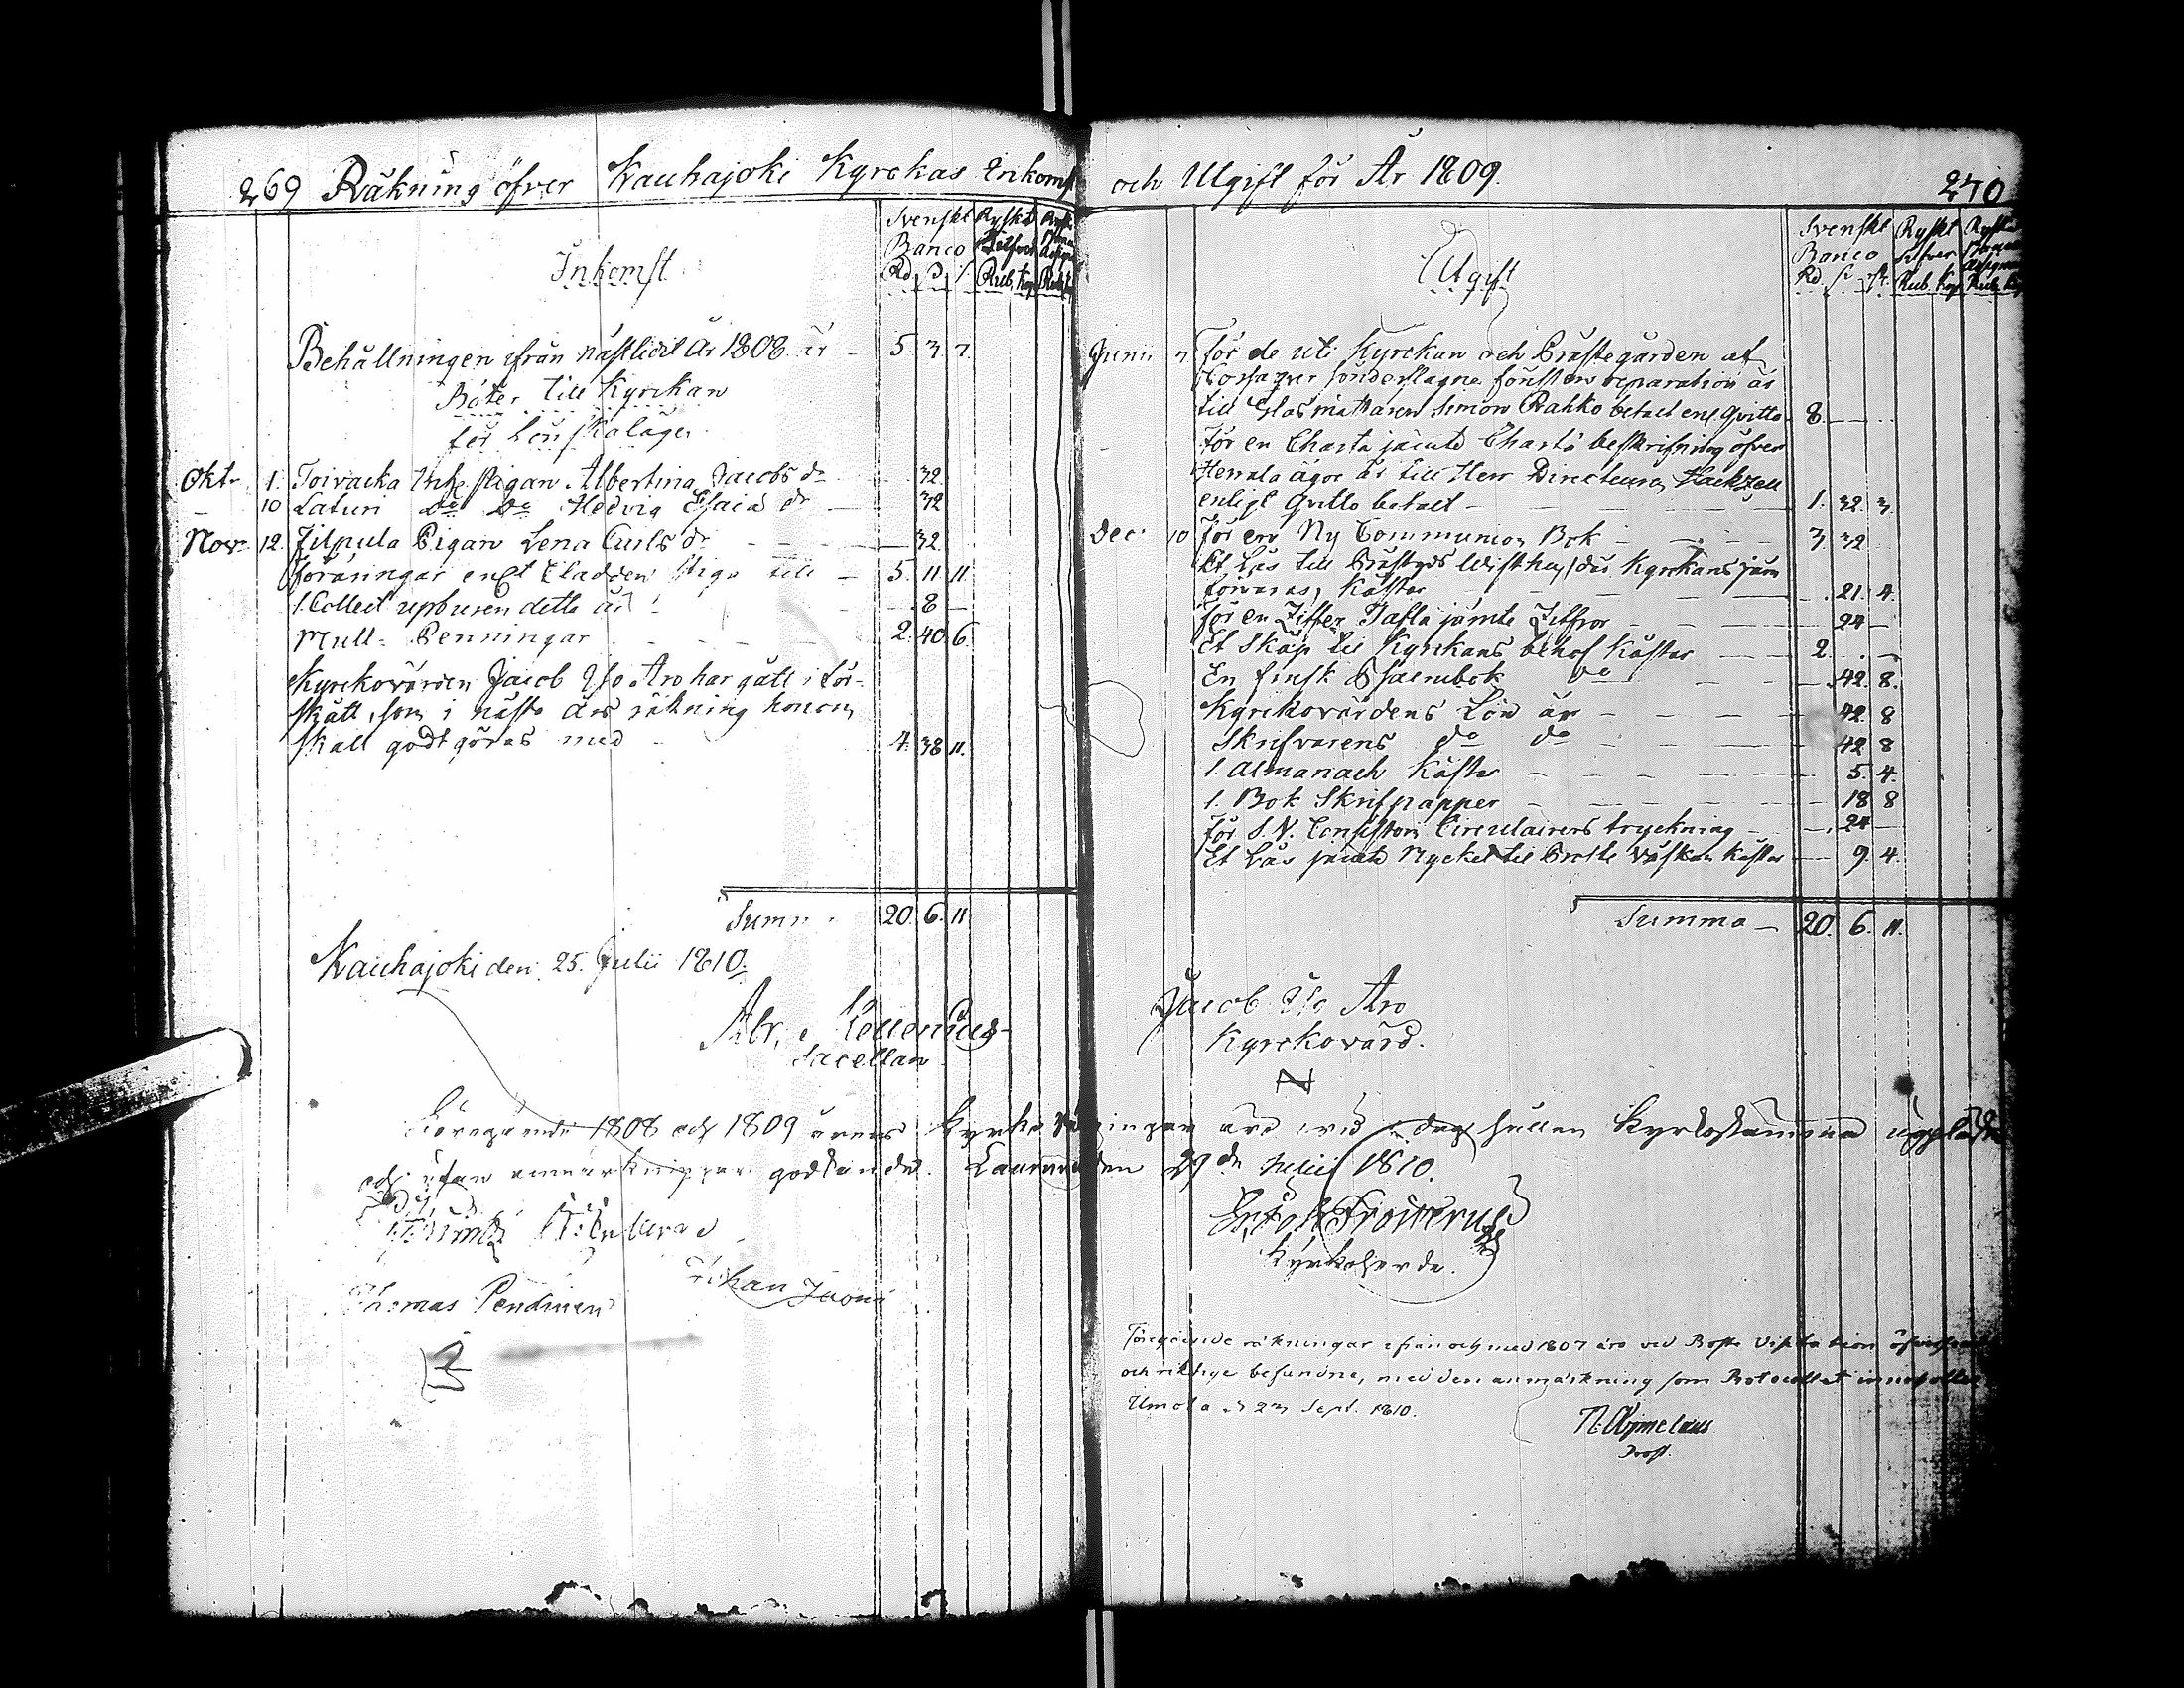 269 Räkning öfver Kauhajoki Kyrckas Inkomst
Svenskt Ryskt
Banco Silfver
Rd. Rub. Kop.
Inkomst
Behållningen ifrån nästledit År 1808 är – 5. 3. 7.
Böter till Kyrckan
för Lönskaläger
Okt. 1. Toivacka Inh. Pigan Albertina Jacobs dr – 32.
– 10 Laturi Do Do Hedvig Esaiæ dr – 32
Nov. 12. Filpula Pigan Lena Carls dr – 32.
föräningar enlt Cladden stiga till – 5. 11. 11.
1. Collect upburen detta år – 8 –
Mull-Penningar – 2. 40. 6.
Kyrckovärden Jacob Iso Aro har gått i för-
skått, som i nästa års räkning honom
skall godtgöras med 4. 38. 11.
Summa 20. 6. 11
Kauhajoki den 25. Julii 1810.
Abr. Mellenius
Sacellan
Föregående 1808 och 1809 årens Kyrko Räkningar
och utan anmärkningar godkände. Laurmo den 29de Julii 1810.
Thomas Pendinen
Johan Jaoni
och Utgift för År 1809. 270
Svenskt Ryskt Ryska
Banco Silfver
Rd. Rub. Kop. Rub.
Utgift
Junii 7 för de uti Kyrckan och Prästegården af
Cosaquer sönderslagna fönsters reparation är
till Glasmästaren Simon Rahko betalt enl. Qvitto – 8. –
för en Charta jämte Charta beskrifning öfver
ägor är till Herr Directeuren Hackzell
enligt Qvitto betalt – 1. 32. 3.
Dec. 10 för en Ny Communion Bok – 3. 32
Et Lås till Prästgds där Kyrckans
förvaras, kåstar – 21. 4.
för en Ziffer Tafla jämte Ziffror – 24 –
Et Skåp til Kyrckans behof kåstar – 2. –
En finsk Psalmbok Do – 42. 8.
Kyrckovärdens Lön är – 42. 8
Skrifvarens do do – 42 8
1. Almanach kåstar – 5. 4.
1. Bok Skrifpapper – 18 8
för S. V. Consistorii Circulairers tryckning – 24 –
Et Lås jämte Nyckel til Brotte Väskan kåstar – 9. 4.
Summa – 20. 6. 11.
Jacob Iso Aro
Kyrckovärd.
äro vid i dag hållen Kyrkostämma uppläste
Kyrkoherde.
Föregående räkningar ifrån och med 1807 äro vid Prosts Visitation öfversedde
och riktige befundne, med den anmärkning som Protocollet innehåller
Umola d 23 Sept. 1810.
N. Aejmelaeus
Prost.